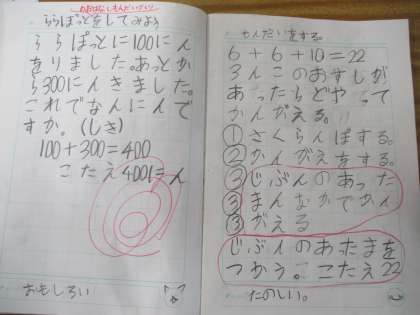 ららぽっとをしてみよう
ららぽっとに100にん
をりました。あっとか
ら300にんきました。
これでなんにんで
すか。(しき)
100+300=400
こたえ400にん
おもしろい
もんだいをする。
6+6+10=22
3んこのおすしが
あったらどやって
かんがえる。
①さくらんぼする。
②かんがえをする。
③じぶんのあった
③まんなかでかん
③がえる
じぶんのあたまを
つかう。こたえ22
たのしい。